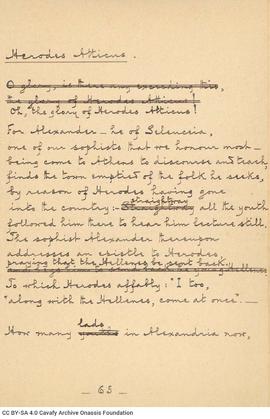 Herodes Atticus.
O glory, is there any exceeding this,
the glory of Herodes Atticus!
Oh, the glory of Herodes Atticus!
For Alexander — he of Seleuceia,
one of our sophists that we honour most —
being come to Athens to discourse and teach,
finds the town emptied of the folk he seeks,
by reason of Herodes having gone
straightway
into the country: all the youth
followed him there to hear him lecture still.
The sophist Alexander thereupon
addresses an epistle to Herodes,
praying that the Hellenes be sent back.
To which Herodes affably: "I too,
"along with the Hellenes, come at once". —
lads
How many youths in Alexandria now,
— 65 —
CC BY-SA 4.0 Cavafy Archive Onassis Foundation